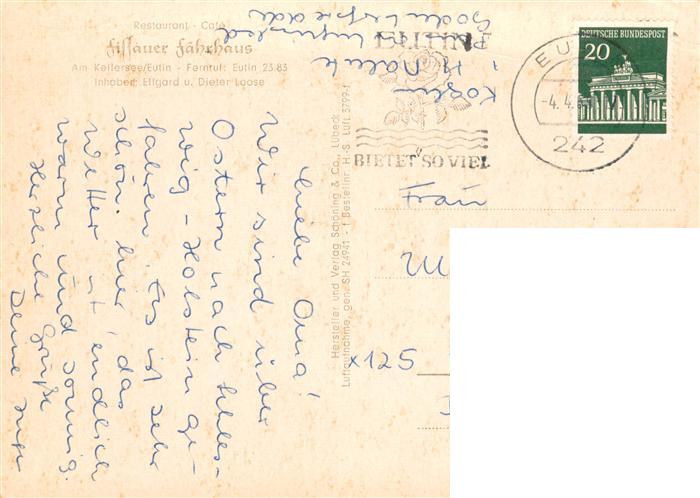 Restaurant - Café
Fissauer Fährhaus
Am Kellersee/Eutin - Fernruf: Eutin 23 83
Inhaber: Elfgard u. Dieter Loose
Liebe Oma!
Wir sind über
Ostern nach Schles-
wig-Holstein ge-
fahren. Es ist sehr
schön hier, das
Wetter ist endlich
warm und sonnig.
Herzliche Grüße
Deine
Hersteller und Verlag Schöning & Co., Lübeck
Luftaufnahme, gen. SH 24941 - f Bestellnr. H.-S. Luft 3799-f
EUTIN
BIETET SO VIEL
EUTIN
-4.4.
242
DEUTSCHE BUNDESPOST
20
Frau
x125